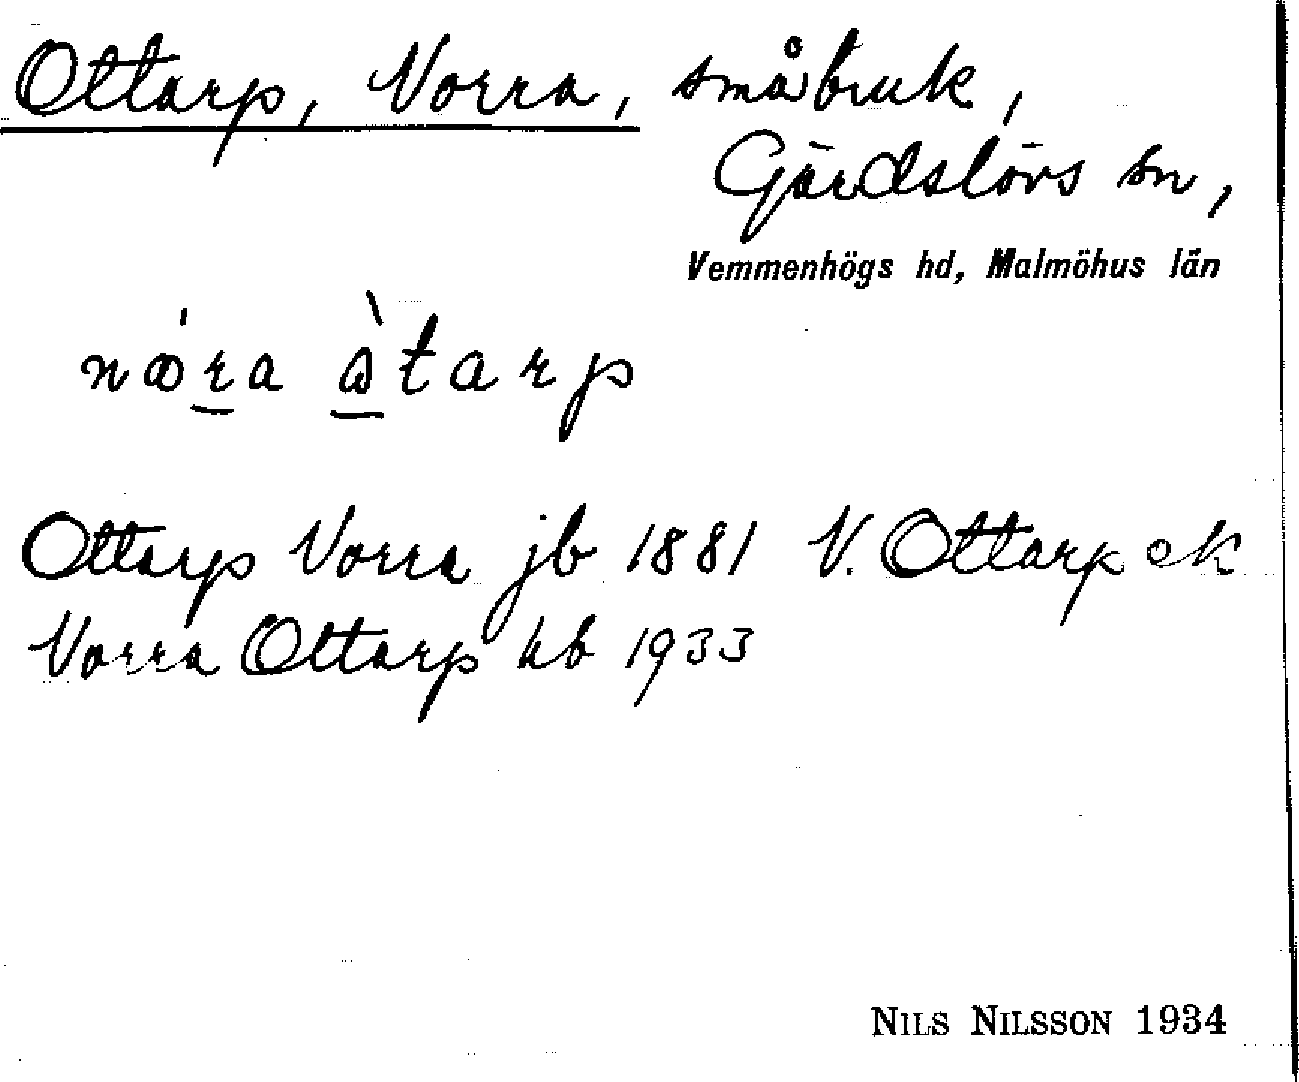 Ottarp, Norra, småbruk,
Gärdslövs sn,
Vemmenhögs hd, Malmöhus län
Ottarp Norra jb 1881 N. Ottarp ek
Norra Ottarp kb 1933
NILS NILSSON 1934